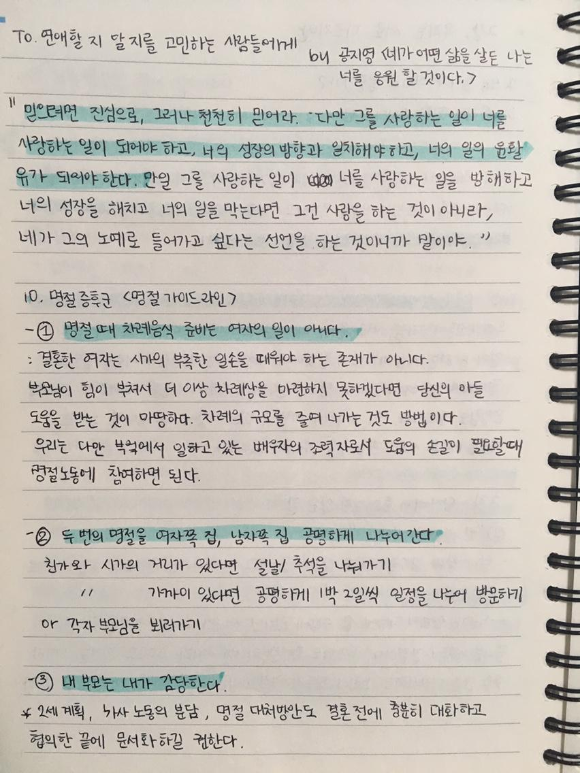 To. 연애할 지 말 지를 고민하는 사람들에게
by 공지영 <네가 어떤 삶을 살든 나는
너를 응원 할 것이다.>
" 믿으려면 진심으로, 그러나 천천히 믿어라. 다만 그를 사랑하는 일이 너를
사랑하는 일이 되어야 하고, 너의 성장의 방향과 일치해야 하고, 너의 일의 윤활
유가 되어야 한다. 만일 그를 사랑하는 일이 너를 사랑하는 일을 방해하고
너의 성장을 해치고 너의 일을 막는다면 그건 사랑을 하는 것이 아니라,
네가 그의 노예로 들어가고 싶다는 선언을 하는 것이니까 말이야. "
10. 명절증후군 <명절 가이드라인>
-① 명절 때 차례음식 준비는 여자의 일이 아니다.
: 결혼한 여자는 시가의 부족한 일손을 때워야 하는 존재가 아니다.
부모님이 힘이 부쳐서 더 이상 차례상을 마련하지 못하겠다면 당신의 아들
도움을 받는 것이 마땅하다. 차례의 규모를 줄여 나가는 것도 방법이다.
우리는 다만 부엌에서 일하고 있는 배우자의 조력자로서 도움의 손길이 필요할 때
명절노동에 참여하면 된다.
-② 두 번의 명절을 여자쪽 집, 남자쪽 집 공평하게 나누어 간다.
친가와 시가의 거리가 있다면 설날/추석을 나눠가기
〃 가까이 있다면 공평하게 1박 2일씩 일정을 나누어 방문하기
or 각자 부모님을 뵈러가기
-③ 내 부모는 내가 감당한다.
* 2세 계획, 가사 노동의 분담, 명절 대처방안도 결혼 전에 충분히 대화하고
협의한 끝에 문서화하길 권한다.